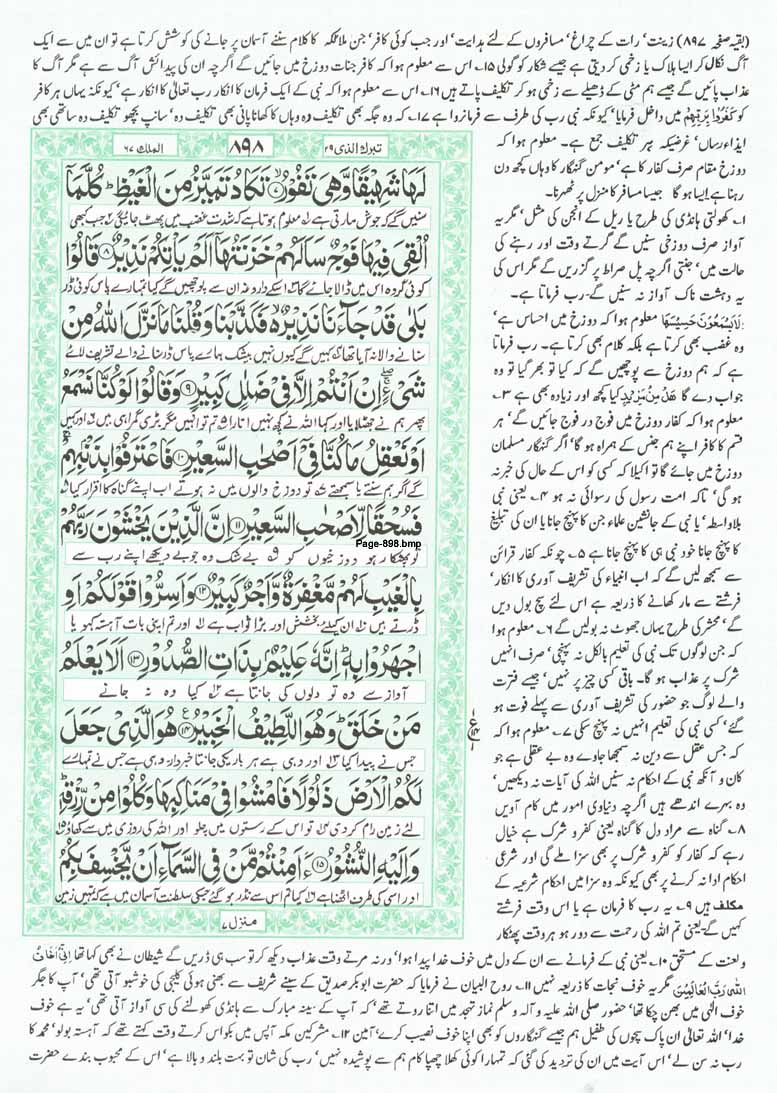 (بقیہ صفحہ ۸۹۷) زینت' رات کے چراغ' مسافروں کے لئے ہدایت' اور جب کوئی کافر' جن ملائکہ کا کلام سننے آسمان پر جانے کی کوشش کرتا ہے تو ان میں سے ایک
آگ نکال کر ایسا ہلاک یا زخمی کر دیتی ہے جیسے شکار کو گولی ۱۵۔ اس سے معلوم ہوا کہ کافر جنات دوزخ میں جائیں گے اگرچہ ان کی پیدائش آگ سے ہے مگر آگ کا
عذاب پائیں گے جیسے ہم مٹی کے ڈھیلے سے زخمی ہو کر تکلیف پاتے ہیں ۱۶۔ اس سے معلوم ہوا کہ نبی کے ایک فرمان کا انکار رب تعالیٰ کا انکار ہے' کیونکہ یہاں ہر کافر
کو كَفَرُوْا بِرَبِّهِمْ میں داخل فرمایا' کیونکہ نبی رب کی طرف سے فرمانروا ہے ۱۷۔ کہ وہ جگہ بھی تکلیف دہ وہاں کا کھانا پانی بھی تکلیف دہ' سانپ بچھو تکلیف دہ ساتھی بھی
ایذاء رساں' غرضیکہ ہر تکلیف جمع ہے۔ معلوم ہوا کہ
دوزخ مقام صرف کفار کا ہے' مومن گنہگار کا وہاں کچھ دن
رہنا ہے ایسا ہو گا جیسا مسافر کا منزل پر ٹھہرنا۔
۱۔ کھولتی ہانڈی کی طرح یا ریل کے انجن کی مثل' مگر یہ
آواز صرف دوزخی سنیں گے گرتے وقت اور رہنے کی
حالت میں' جنتی اگرچہ پل صراط پر گزریں گے مگر اس کی
یہ دہشت ناک آواز نہ سنیں گے۔ رب فرماتا ہے۔
لَا يَسْمَعُوْنَ حَسِيْسَهَا معلوم ہوا کہ دوزخ میں احساس ہے'
وہ غضب بھی کرتا ہے بلکہ کلام بھی کرتا ہے۔ رب فرماتا
ہے کہ ہم دوزخ سے پوچھیں گے کہ کیا تو بھر گیا تو وہ
جواب دے گا هَلْ مِنْ مَّزِيْدٍ کیا کچھ اور زیادہ بھی ہے ۳۔
معلوم ہوا کہ کفار دوزخ میں فوج در فوج جائیں گے' ہر
قسم کا کافر اپنے ہم جنس کے ہمراہ ہو گا' اگر گنہگار مسلمان
دوزخ میں جائے گا تو اکیلا کہ کسی کو اس کے حال کی خبر نہ
ہو گی' تاکہ امت رسول کی رسوائی نہ ہو ۴۔ یعنی نبی
بلاواسطہ' یا نبی کے جانشین علماء جن کا پہنچ جانا یا ان کی تبلیغ
کا پہنچ جانا خود نبی ہی کا پہنچ جانا ہے ۵۔ چونکہ کفار قرائن
سے سمجھ لیں گے کہ اب انبیاء کی تشریف آوری کا انکار'
فرشتے سے مار کھانے کا ذریعہ ہے اس لئے سچ بول دیں
گے' محشر کی طرح یہاں جھوٹ نہ بولیں گے ۶۔ معلوم ہوا
کہ جن لوگوں تک نبی کی تعلیم بالکل نہ پہنچی' صرف انہیں
شرک پر عذاب ہو گا۔ باقی کسی چیز پر نہیں' جیسے فترت
والے لوگ جو حضور کی تشریف آوری سے پہلے فوت ہو
گئے' کسی نبی کی تعلیم انہیں نہ پہنچ سکی ۷۔ معلوم ہوا کہ
کہ جس عقل سے دین نہ سمجھا جاوے وہ بے عقلی ہے جو
کان و آنکھ نبی کے احکام نہ سنیں اللہ کی آیات نہ دیکھیں'
وہ بہرے اندھے ہیں اگرچہ دنیاوی امور میں کام آویں
۸۔ گناہ سے مراد دل کا گناہ یعنی کفر و شرک ہے خیال
رہے کہ کفار کو کفر و شرک پر بھی سزا ملے گی اور شرعی
احکام ادا نہ کرنے پر بھی کیونکہ وہ سزا میں احکام شرعیہ کے
مکلف ہیں ۹۔ یہ رب کا فرمان ہے یا اس وقت فرشتے
کہیں گے۔ یعنی تم اللہ کی رحمت سے دور ہو ہر وقت پھٹکار
الملك ۶۷
۸۹۸
تبرك الذى ۲۹
لَهَا شَهِيْقًا وَّهِيَ تَفُوْرُ ۷ تَكَادُ تَمَيَّزُ مِنَ الْغَيْظِ ؕ كُلَّمَاۤ
سنیں گے کہ جوش مارتی ہے معلوم ہوتا ہے کہ شدت غضب میں پھٹ جائیگی جب کبھی
اُلْقِيَ فِيْهَا فَوْجٌ سَاَلَهُمْ خَزَنَتُهَاۤ اَلَمْ يَاْتِكُمْ نَذِيْرٌ ۸ قَالُوْا
کوئی گروہ اس میں ڈالا جائے گا اسکے داروغہ ان سے پوچھیں گے کیا تمہارے پاس کوئی ڈر
بَلٰى قَدْ جَآءَنَا نَذِيْرٌ ۙ فَكَذَّبْنَا وَقُلْنَا مَا نَزَّلَ اللّٰهُ مِنْ
سنانے والا نہ آیا تھا کہیں گے کیوں نہیں بیشک ہمارے پاس ڈر سنانے والے تشریف لائے
شَيْءٍ ۖۚ اِنْ اَنْتُمْ اِلَّا فِيْ ضَلٰلٍ كَبِيْرٍ ۹ وَقَالُوْا لَوْ كُنَّا نَسْمَعُ
پھر ہم نے جھٹلایا اور کہا اللہ نے کچھ نہیں اتارا تم تو نہیں مگر بڑی گمراہی میں اور کہیں
اَوْ نَعْقِلُ مَا كُنَّا فِيْۤ اَصْحٰبِ السَّعِيْرِ ۱۰ فَاعْتَرَفُوْا بِذَنْۢبِهِمْ ۚ
گے اگر ہم سنتے یا سمجھتے تو دوزخ والوں میں نہ ہوتے اب اپنے گناہ کا اقرار کیا
فَسُحْقًا لِّاَصْحٰبِ السَّعِيْرِ ۱۱ اِنَّ الَّذِيْنَ يَخْشَوْنَ رَبَّهُمْ
Page-898.bmp
تو پھٹکار ہو دوزخیوں کو بے شک وہ جو بے دیکھے اپنے رب سے
بِالْغَيْبِ لَهُمْ مَّغْفِرَةٌ وَّاَجْرٌ كَبِيْرٌ ۱۲ وَاَسِرُّوْا قَوْلَكُمْ اَوِ
ڈرتے ہیں ان کیلئے بخشش اور بڑا ثواب ہے اور تم اپنی بات آہستہ کہو یا
اجْهَرُوْا بِهٖ ؕ اِنَّهٗ عَلِيْمٌۢ بِذَاتِ الصُّدُوْرِ ۱۳ اَلَا يَعْلَمُ
آواز سے وہ تو دلوں کی جانتا ہے کیا وہ نہ جانے
مَنْ خَلَقَ ؕ وَهُوَ اللَّطِيْفُ الْخَبِيْرُ ۱۴ هُوَ الَّذِيْ جَعَلَ
جس نے پیدا کیا اور وہی ہے ہر باریکی جانتا خبردار وہی ہے جس نے تمہارے
لَكُمُ الْاَرْضَ ذَلُوْلًا فَامْشُوْا فِيْ مَنَاكِبِهَا وَكُلُوْا مِنْ رِّزْقِهٖ ؕ
لئے زمین رام کر دی تو اس کے رستوں میں چلو اور اللہ کی روزی میں سے کھاؤ
وَاِلَيْهِ النُّشُوْرُ ۱۵ ءَاَمِنْتُمْ مَّنْ فِي السَّمَآءِ اَنْ يَّخْسِفَ بِكُمُ
اور اسی کی طرف اٹھنا ہے کیا تم اس سے نڈر ہو گئے جسکی سلطنت آسمان میں ہے کہ تمہیں زمین
منزل ۷
و لعنت کے مستحق ۱۰۔ یعنی نبی کے فرمانے سے ان کے دل میں خوف خدا پیدا ہوا' ورنہ مرتے وقت عذاب دیکھ کر تو سب ہی ڈریں گے شیطان نے بھی کہا تھا اِنِّيْۤ اَخَافُ
اللّٰهَ رَبَّ الْعٰلَمِيْنَ مگر یہ خوف نجات کا ذریعہ نہیں ۱۱۔ روح البیان نے فرمایا کہ حضرت ابوبکر صدیق کے سینے شریف سے بھنی ہوئی کلیجی کی خوشبو آتی تھی' آپ کا جگر
خوف الٰہی میں بھن چکا تھا' حضور صلی اللہ علیہ و آلہ و سلم نماز تہجد میں اتنا روتے تھے' کہ آپ کے سینہ مبارک سے ہانڈی کھولنے کی سی آواز آتی تھی' یہ ہے خوف
خدا' اللہ تعالیٰ ان پاک سچوں کی طفیل ہم جیسے گنہگاروں کو بھی اپنا خوف نصیب کرے' آمین ۱۲۔ مشرکین مکہ آپس میں بکواس کرتے وقت کہتے تھے کہ آہستہ بولو' محمد کا
رب نہ سن لے' اس آیت میں ان کی تردید کی گئی کہ تمہارا کوئی کھلا چھپا کام ہم سے پوشیدہ نہیں' رب کی شان تو بہت بلند و بالا ہے' اس کے محبوب بندے حضرت